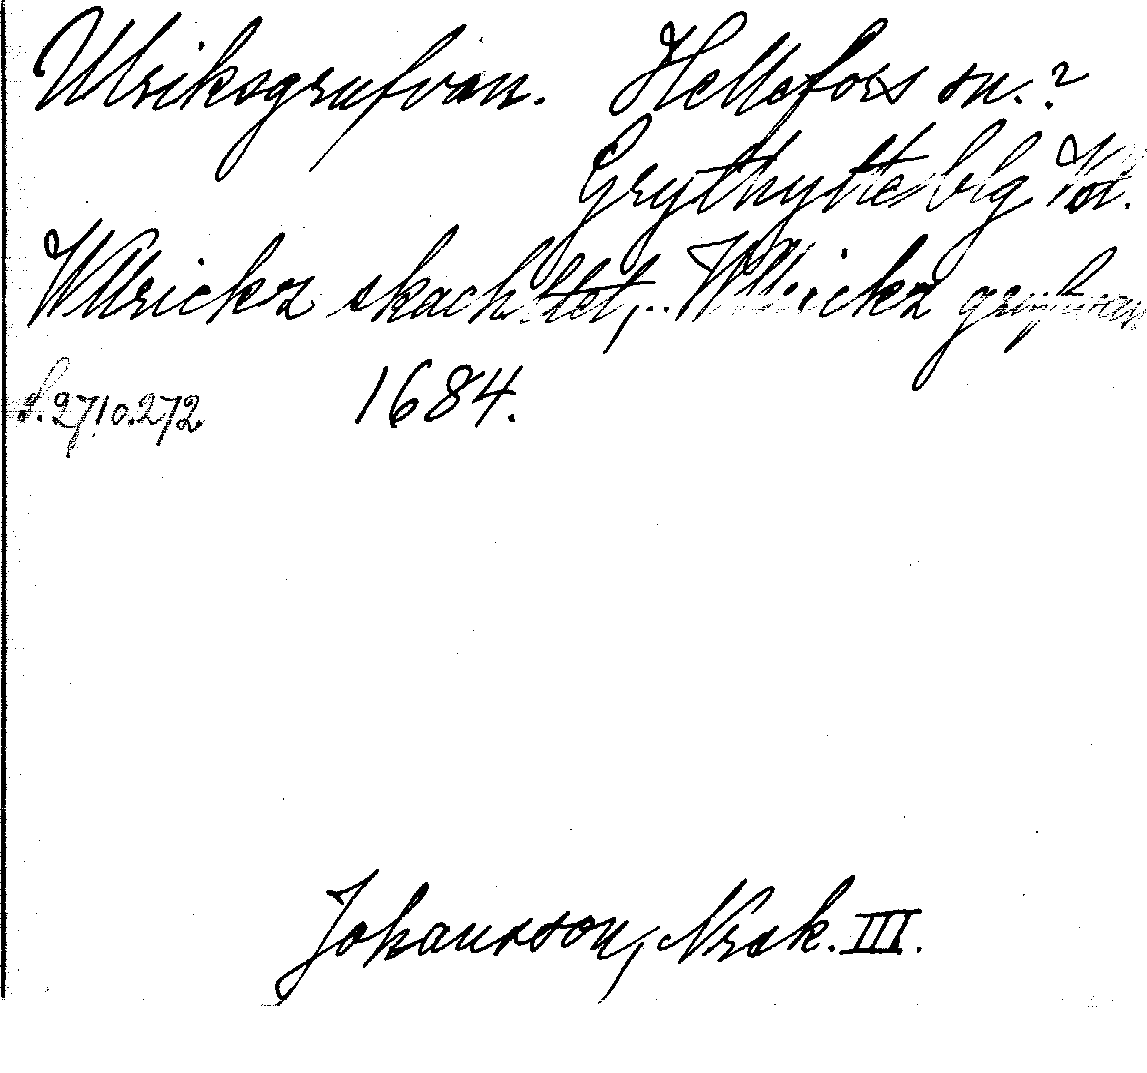 Ulriksgrufvan. Hellefors sn.?
Grythytte blg Vstl.
Wllrickz skachttet, .. Wllrickz grufwan
S. 271 o. 272 1684.
Johansson, Nrsk. III.